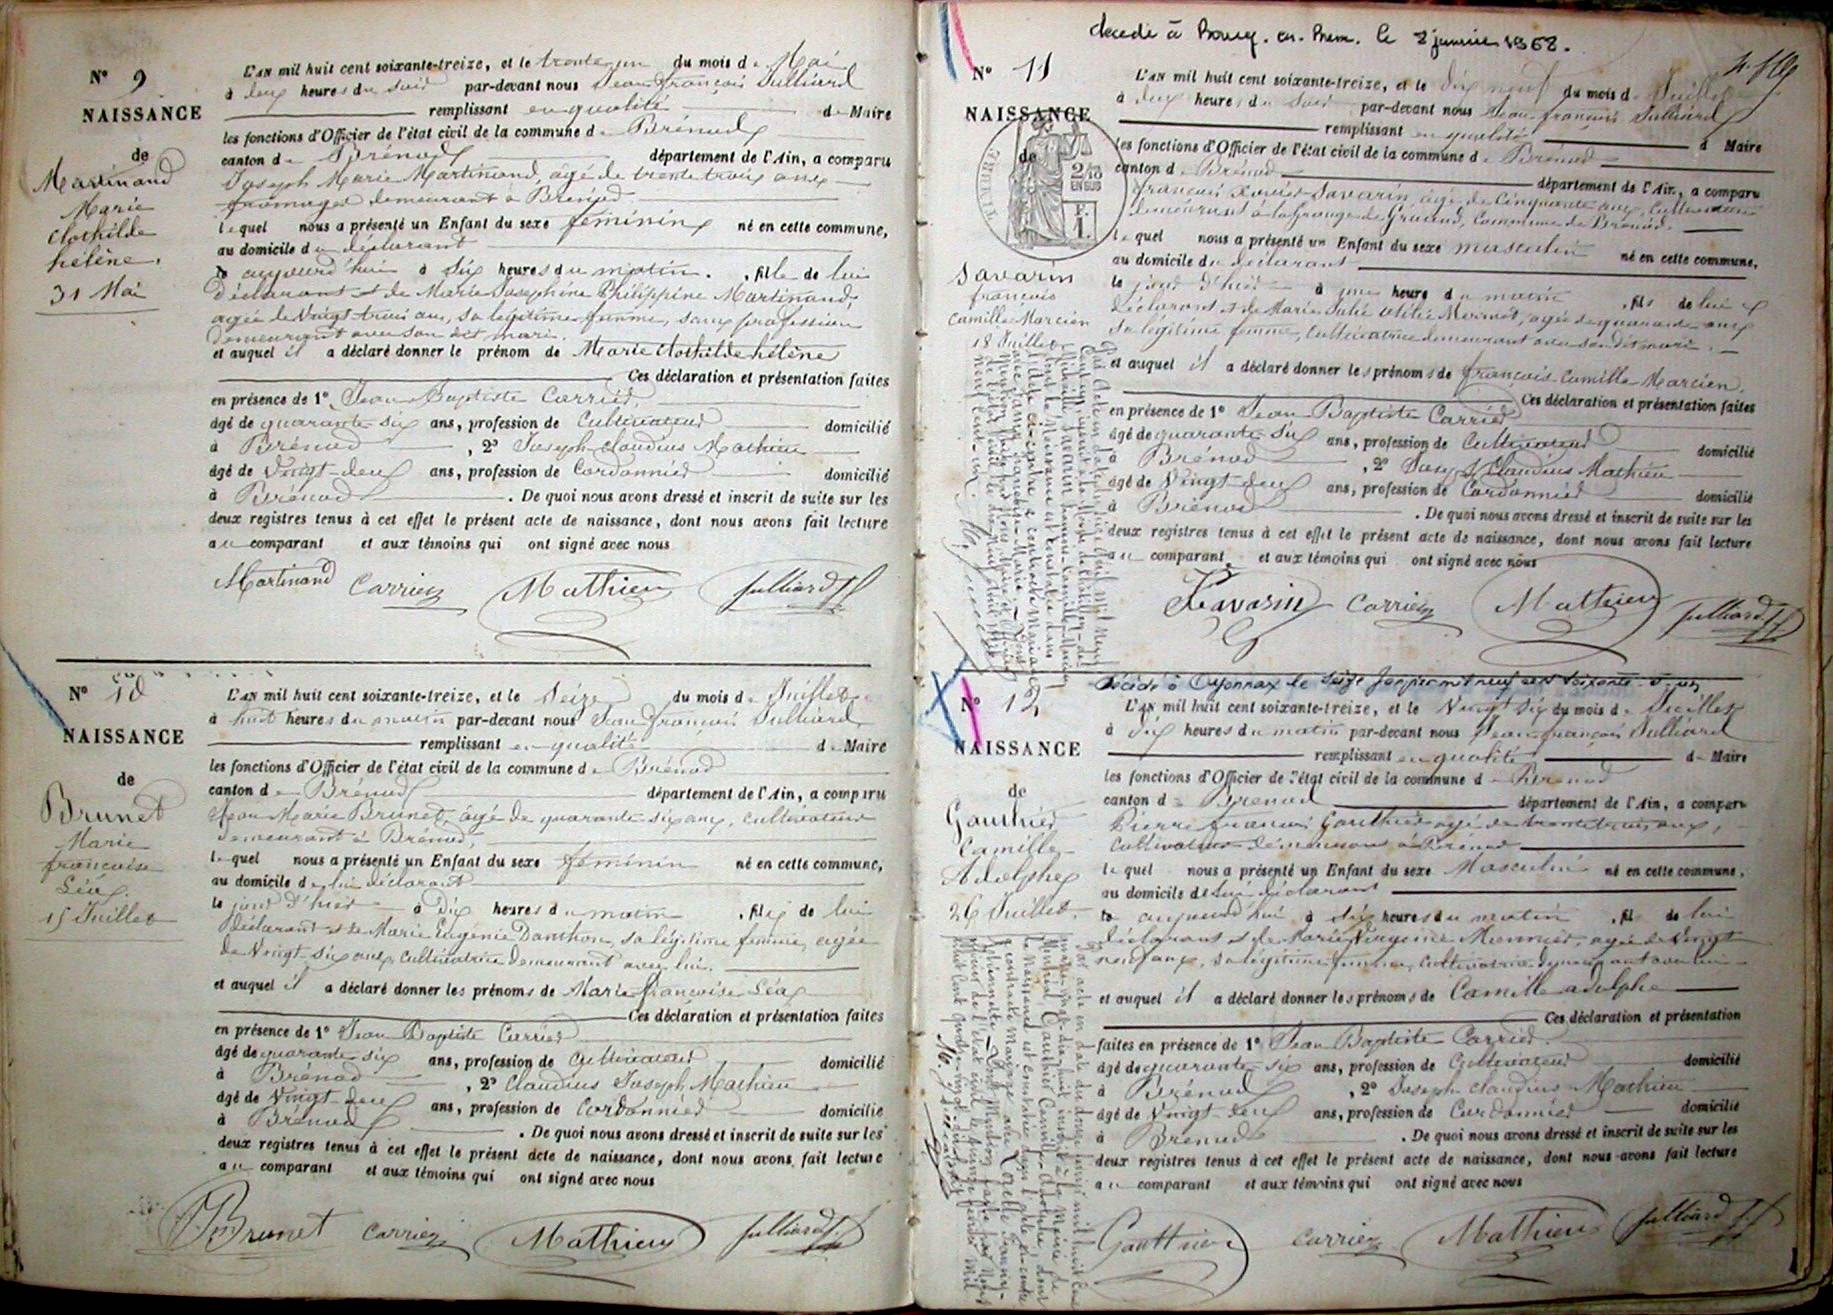 N° 9
NAISSANCE
de
Martinand
Marie
Clothilde
hélène.
31 Mai
L'AN mil huit cent soixante-treize, et le trente un du mois de Mai
à deux heures du soir par-devant nous Jean françois Julliard
remplissant en qualité de Maire
les fonctions d'Officier de l'état civil de la commune de Brénod
canton de Brénod département de l'Ain, a comparu
Joseph Marie Martinand, âgé de trente trois ans
fromager demeurant à Brénod
lequel nous a présenté un Enfant du sexe féminin né en cette commune,
au domicile du déclarant
aujourd'hui à six heures du matin. , fille de lui
Déclarant et de Marie Josephine Philippine Martinand,
agée de Vingt trois ans, sa légitime femme, sans profession
demeurant avec son dit mari.
et auquel il a déclaré donner le prénom de Marie Clothilde hélène
Ces déclaration et présentation faites
en présence de 1° Jean Baptiste Carrier,
âgé de quarante six ans, profession de Cultivateur domicilié
à Brénod , 2° Joseph Claudius Mathieu
âgé de Vingt deux ans, profession de Cordonnier domicilié
à Brénod . De quoi nous avons dressé et inscrit de suite sur les
deux registres tenus à cet effet le présent acte de naissance, dont nous avons fait lecture
au comparant et aux témoins qui ont signé avec nous
Martinand Carrier Mathieu Julliard
N° 10
NAISSANCE
de
Brunet
Marie
françoise
Léa.
15 Juillet
L'AN mil huit cent soixante-treize, et le Seize du mois de Juillet
à huit heures du matin par-devant nous Jean françois Julliard
remplissant en qualité de Maire
les fonctions d'Officier de l'état civil de la commune de Brénod
canton de Brénod département de l'Ain, a comparu
Jean Marie Brunet, âgé de quarante six ans, cultivateur
demeurant à Brénod,
lequel nous a présenté un Enfant du sexe féminin né en cette commune,
au domicile de lui déclarant
le jour d'hier à Dix heures du matin , fille de lui
déclarant et de Marie Eugénie Danthon, sa légitime femme, agée
de Vingt six ans, cultivatrice demeurant avec lui.
et auquel il a déclaré donner les prénoms de Marie françoise Léa
Ces déclaration et présentation faites
en présence de 1° Jean Baptiste Carrier
âgé de quarante six ans, profession de Cultivateur domicilié
à Brénod , 2° Claudius Joseph Mathieu
âgé de Vingt deux ans, profession de Cordonnier domicilié
à Brénod . De quoi nous avons dressé et inscrit de suite sur les
deux registres tenus à cet effet le présent acte de naissance, dont nous avons fait lecture
au comparant et aux témoins qui ont signé avec nous
Brunet Carrier Mathieu Julliard
décédé à Bourg-en-Bresse le 2 janvier 1962.
N° 11
NAISSANCE
de
2/10
EN SUS
F.
1.
Savarin
françois
Camille Marcien
18 Juillet
L'AN mil huit cent soixante-treize, et le Dix neuf du mois de Juillet
à deux heures du soir par-devant nous Jean françois Julliard
remplissant en qualité de Maire
les fonctions d'Officier de l'état civil de la commune de Brénod
canton de Brénod département de l'Ain, a comparu
françois Xavier Savarin, agé de Cinquante ans, Cultivateur
demeurant à la Grange de Commune de Brénod.
lequel nous a présenté un Enfant du sexe masculin né en cette commune,
au domicile du déclarant
le jour d'hier à une heure du matin , fils de lui
déclarant et de Marie Julie agée de quarante ans
sa légitime femme, Cultivatrice demeurant avec son dit mari.
et auquel il a déclaré donner les prénoms de françois Camille Marcien.
Ces déclaration et présentation faites
en présence de 1° Jean Baptiste Carrier
âgé de quarante six ans, profession de Cultivateur domicilié
à Brénod , 2° Joseph Claudius Mathieu
âgé de Vingt deux ans, profession de Cordonnier domicilié
à Brénod . De quoi nous avons dressé et inscrit de suite sur les
deux registres tenus à cet effet le présent acte de naissance, dont nous avons fait lecture
au comparant et aux témoins qui ont signé avec nous
Savarin Carrier Mathieu Julliard
Décédé à Oyonnax le seize janvier mil neuf cent soixante
N° 12
NAISSANCE
de
Gauthier
Camille
Adolphe
26 Juillet.
L'AN mil huit cent soixante-treize, et le Vingt six du mois de Juillet
à dix heures du matin par-devant nous Jean françois Julliard
remplissant en qualité de Maire
les fonctions d'Officier de l'état civil de la commune de Brénod
canton de Brénod département de l'Ain, a comparu
Pierre françois Gauthier agé de trente trois ans,
cultivateur demeurant à Brénod
lequel nous a présenté un Enfant du sexe Masculin né en cette commune,
au domicile de lui déclarant
aujourd'hui à six heures du matin , fil de lui
déclarant et de Marie Virginie Monnier, agée de Vingt
neuf ans, sa légitime femme, cultivatrice demeurant avec lui
et auquel il a déclaré donner les prénoms de Camille adolphe
Ces déclaration et présentation
faites en présence de 1° Jean Baptiste Carrier.
âgé de quarante six ans, profession de Cultivateur domicilié
à Brénod , 2° Joseph Claudius Mathieu
âgé de Vingt deux ans, profession de Cordonnier domicilié
à Brénod . De quoi nous avons dressé et inscrit de suite sur les
deux registres tenus à cet effet le présent acte de naissance, dont nous avons fait lecture
au comparant et aux témoins qui ont signé avec nous
Gauthier Carrier Mathieu Julliard